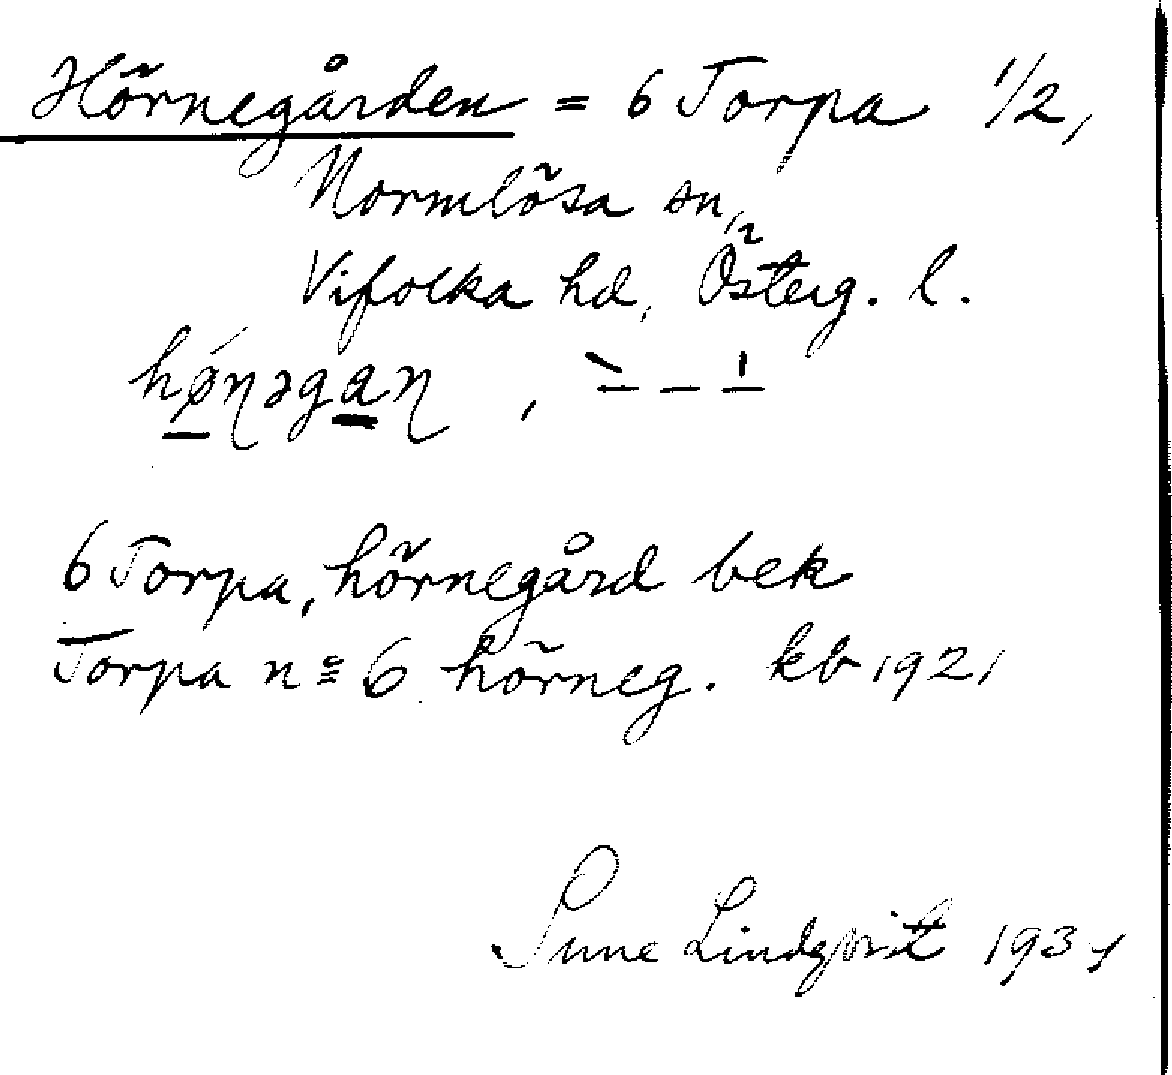 Hörnegården = 6 Torpa 1/2,
Normlösa sn,
Vifolka hd, Österg. l.
6 Torpa, hörnegård bek
Torpa no 6 hörneg. kb 1921
Sune Lindqvist